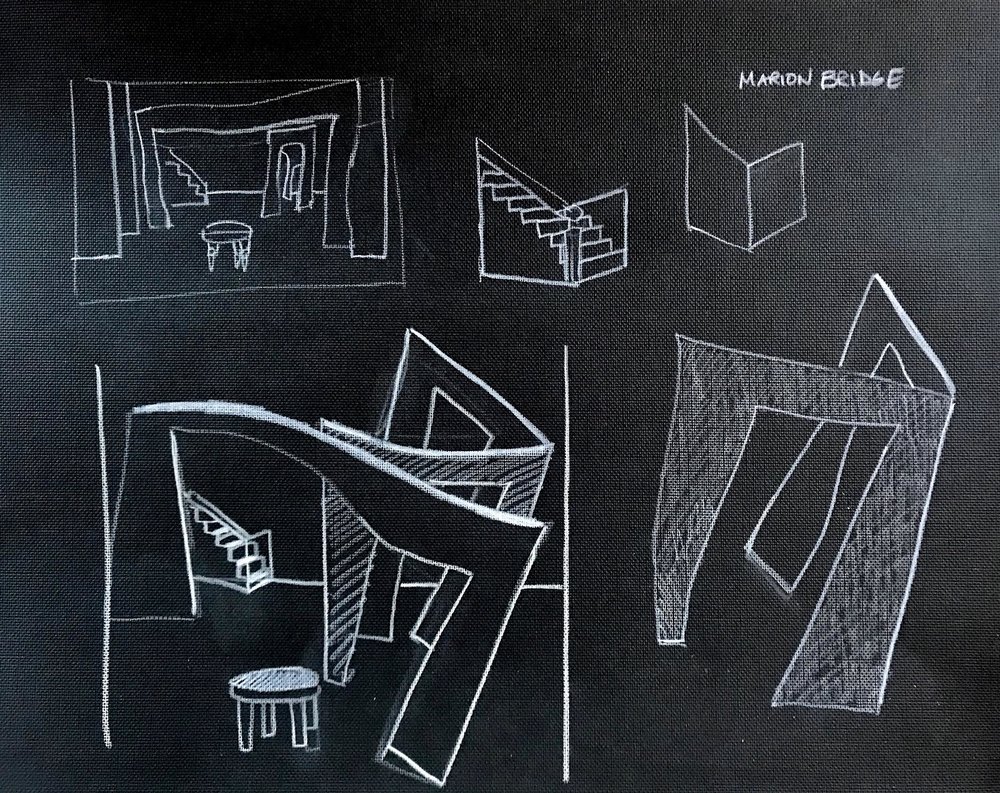 MARION BRIDGE